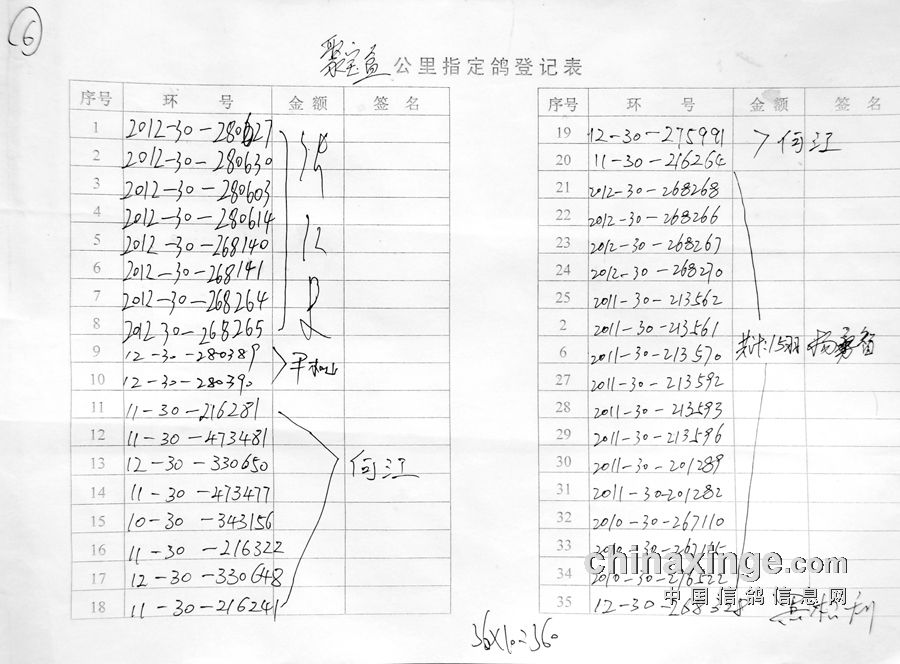 6
聚宝盆 公里指定鸽登记表
序号 环 号 金额 签 名
1 2012-30-280627
2 2012-30-280630
3 2012-30-280603
4 2012-30-280614
5 2012-30-268140
6 2012-30-268141
7 2012-30-268264
8 2012-30-268265
9 12-30-280389
10 12-30-280390
11 11-30-216281
12 11-30-473481
13 12-30-330650
何江
14 11-30-473477
15 10-30-343156
16 11-30-216322
17 12-30-330648
18 11-30-216241
序号 环 号 金额 签 名
19 12-30-275991
何江
20 11-30-216264
21 2012-30-268268
22 2012-30-268266
23 2012-30-268267
24 2012-30-268270
25 2011-30-213562
2 2011-30-213561
6 2011-30-213570
共计15羽 杨勇智
27 2011-30-213592
28 2011-30-213593
29 2011-30-213596
30 2011-30-201289
31 2011-30-201282
32 2010-30-267110
33 2010-30-
34 2010-30-216522
35 12-30-268328
36×10=360
chinaxinge.com
中国信鸽信息网